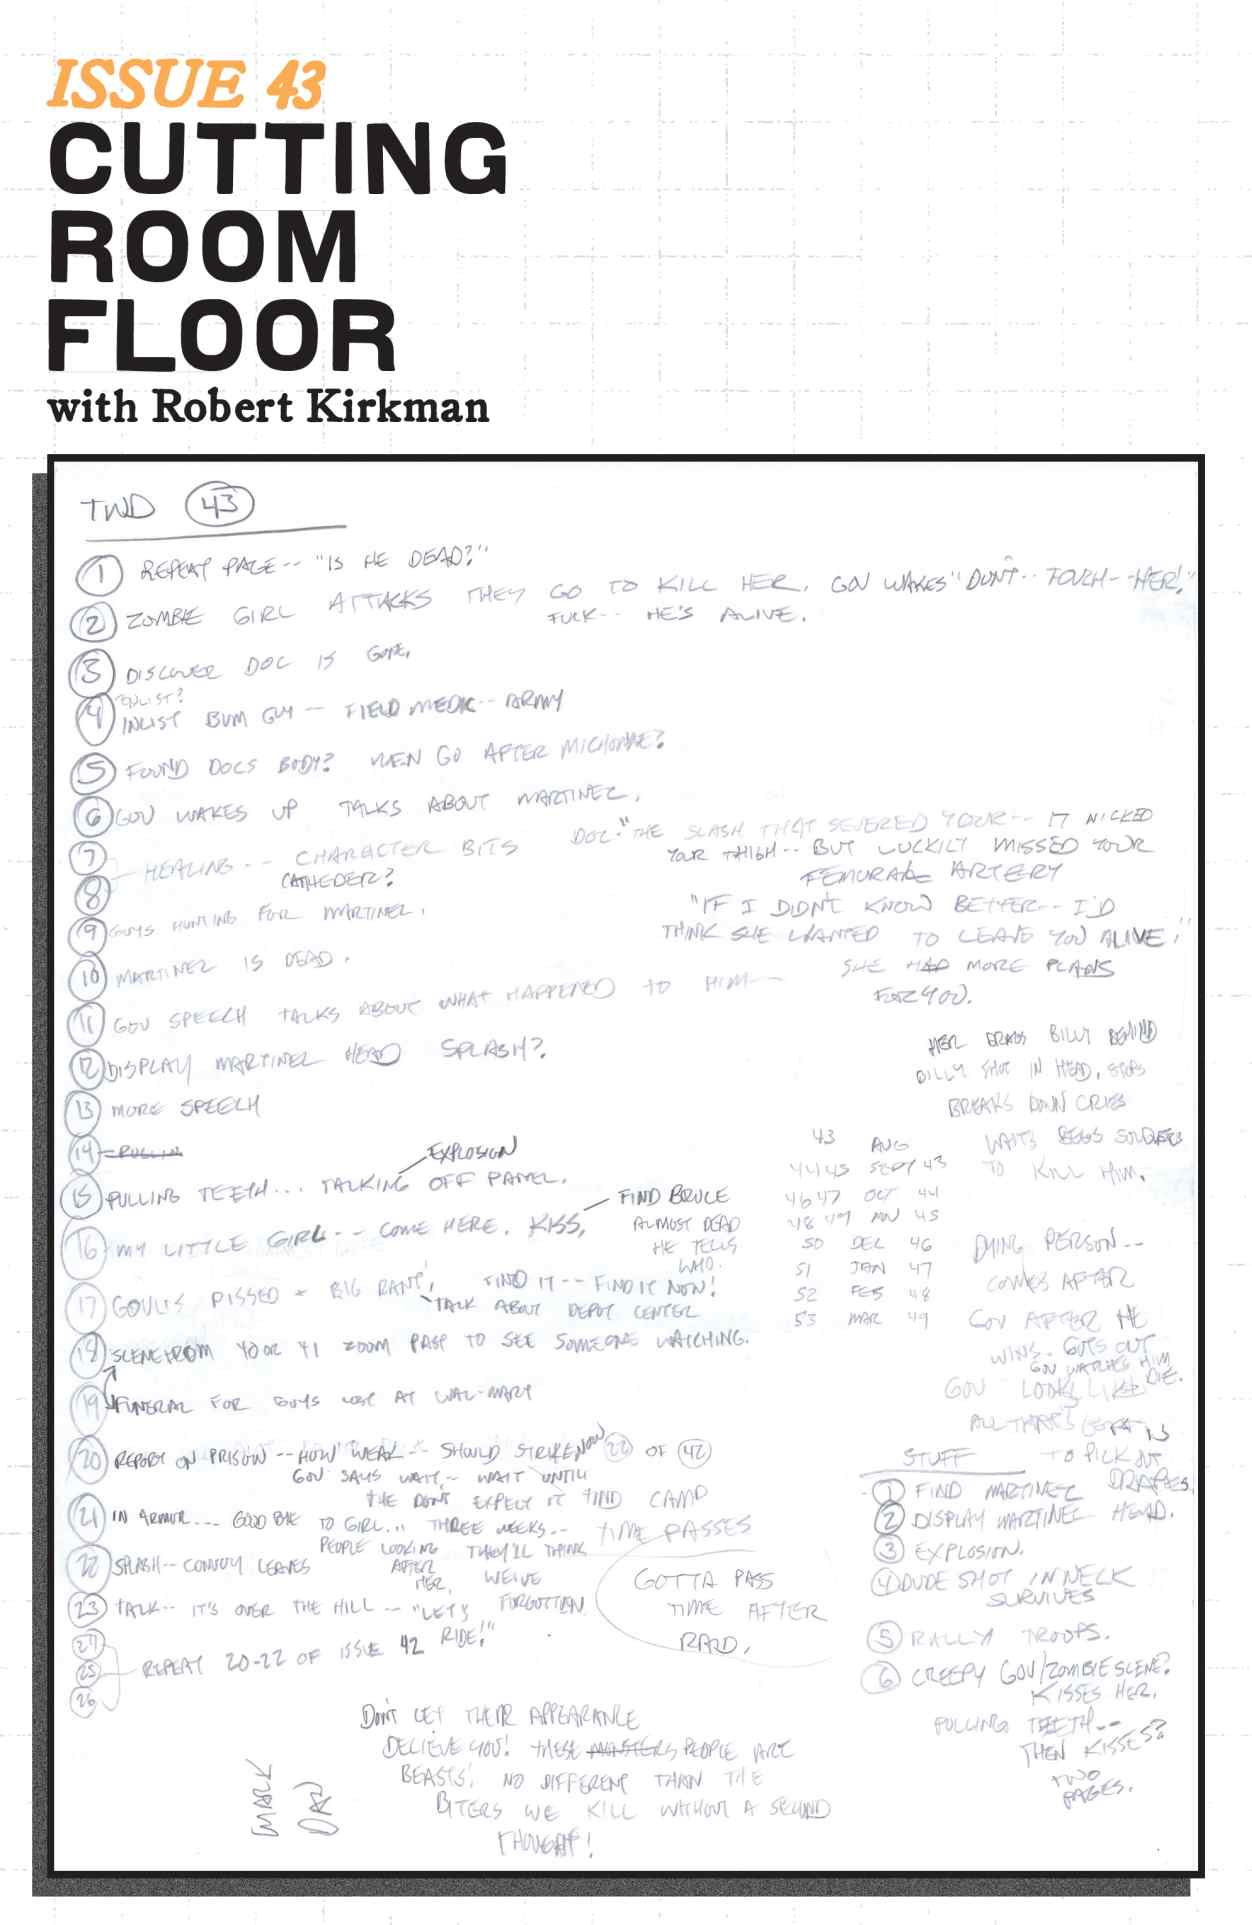 ISSUE 43
CUTTING
ROOM
FLOOR
with Robert Kirkman
TWD 43
1 REPEAT PAGE-- "IS HE DEAD?"
2 ZOMBIE GIRL ATTACKS THEY GO TO KILL HER. GOV WAKES "DON'T-- TOUCH--HER!"
FUCK-- HE'S ALIVE.
3 DISCOVER DOC IS GONE.
ENLIST?
4 INLIST BUM GUY -- FIELD MEDIC-- ARMY
5 FOUND DOCS BODY? MEN GO AFTER MICHONNE?
6 GOV WAKES UP TALKS ABOUT MARTINEZ.
7
8
HEALING-- CHARACTER BITS
CATHEDER?
DOC-"THE SLASH THAT SEVERED YOUR-- IT NICKED
YOUR THIGH-- BUT LUCKILY MISSED YOUR
FEMORAL ARTERY
"IF I DIDN'T KNOW BETTER-- I'D
THINK SHE WANTED TO LEAVE YOU ALIVE."
SHE HAD MORE PLANS
FOR YOU.
9 GUYS HUNTING FOR MARTINEZ.
10 MARTINEZ IS DEAD.
11 GOV SPEECH TALKS ABOUT WHAT HAPPENED TO HIM--
12 DISPLAY MARTINEZ HEAD SPLASH?
13 MORE SPEECH
14
EXPLOSION
15 PULLING TEETH... TALKING OFF PANEL.
16 MY LITTLE GIRL-- COME HERE. KISS.
FIND BRUCE
ALMOST DEAD
HE TELLS
WHO.
17 PISSED + BIG RANT! FIND IT-- FIND IT NOW!
TALK ABOUT DEPOT CENTER
18 SCENE FROM 40 OR 41 ZOOM PAST TO SEE SOMEONE WATCHING.
19 FUNERAL FOR GUYS LOST AT WAL-MART
20 REPORT ON PRISON -- HOW WEAK -- SHOULD STRIKE NOW 22 OF 42
GOV SAYS WAIT-- WAIT UNTIL
THE DONT EXPECT IT FIND CAMP
21 IN ARMOR... GOOD BYE TO GIRL... THREE WEEKS--
PEOPLE LOOKING AFTER HER.
THEY'LL THINK WE'VE FORGOTTEN
TIME PASSES
22 SPLASH-- CONVOY LEAVES
GOTTA PASS
TIME AFTER
RAID.
23 TALK-- IT'S OVER THE HILL-- "LET'S RIDE!"
24
25
26
REPEAT 20-22 OF ISSUE 42
HER DRAGS BILLY BEHIND
BILLY SHOT IN HEAD, STOPS
BREAKS DOWN CRIES
WAITS BEGS SOLDIERS
TO KILL HIM.
43 AUG
44 45 SEPT 43
46 47 OCT 44
48 49 NOV 45
50 DEC 46
51 JAN 47
52 FEB 48
53 MAR 49
DYING PERSON--
COMES AFTER
GOV AFTER HE
WINS. GUTS OUT
GOV WATCHES HIM
DIE.
GOV LOOKS LIKE
ALL THAT'S LEFT IS
TO PICK OUT
DRAPES.
STUFF
1 FIND MARTINEZ
2 DISPLAY MARTINEZ HEAD.
3 EXPLOSION.
4 DUDE SHOT IN NECK
SURVIVES
5 RALLY TROOPS.
6 CREEPY GOV/ZOMBIE SCENE?
KISSES HER.
PULLING TEETH--
THEN KISSES?
TWO
PAGES.
DON'T LET THEIR APPEARANCE
DECIEVE YOU! THESE MONSTERS PEOPLE ARE
BEASTS! NO DIFFERENT THAN THE
BITERS WE KILL WITHOUT A SECOND
THOUGHT!
MARK